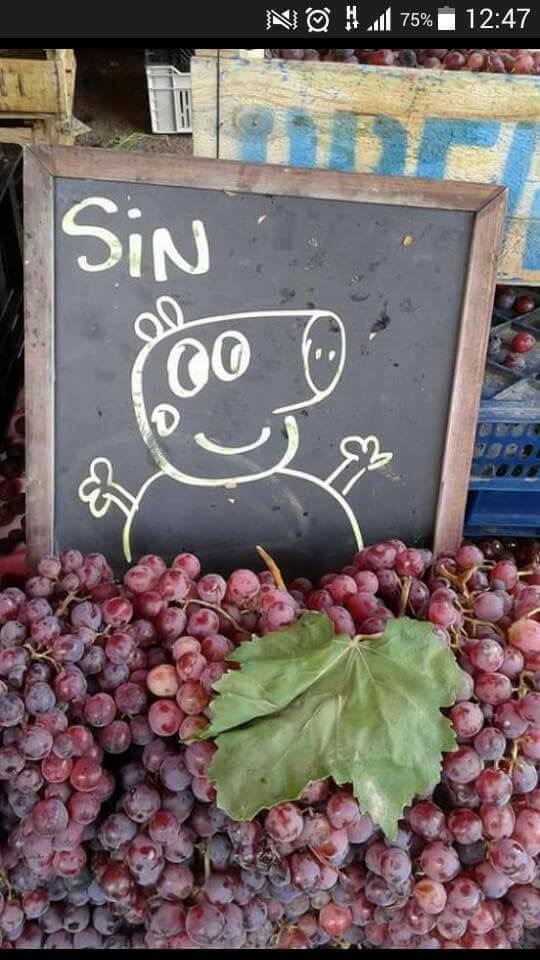 75% 12:47
SiN